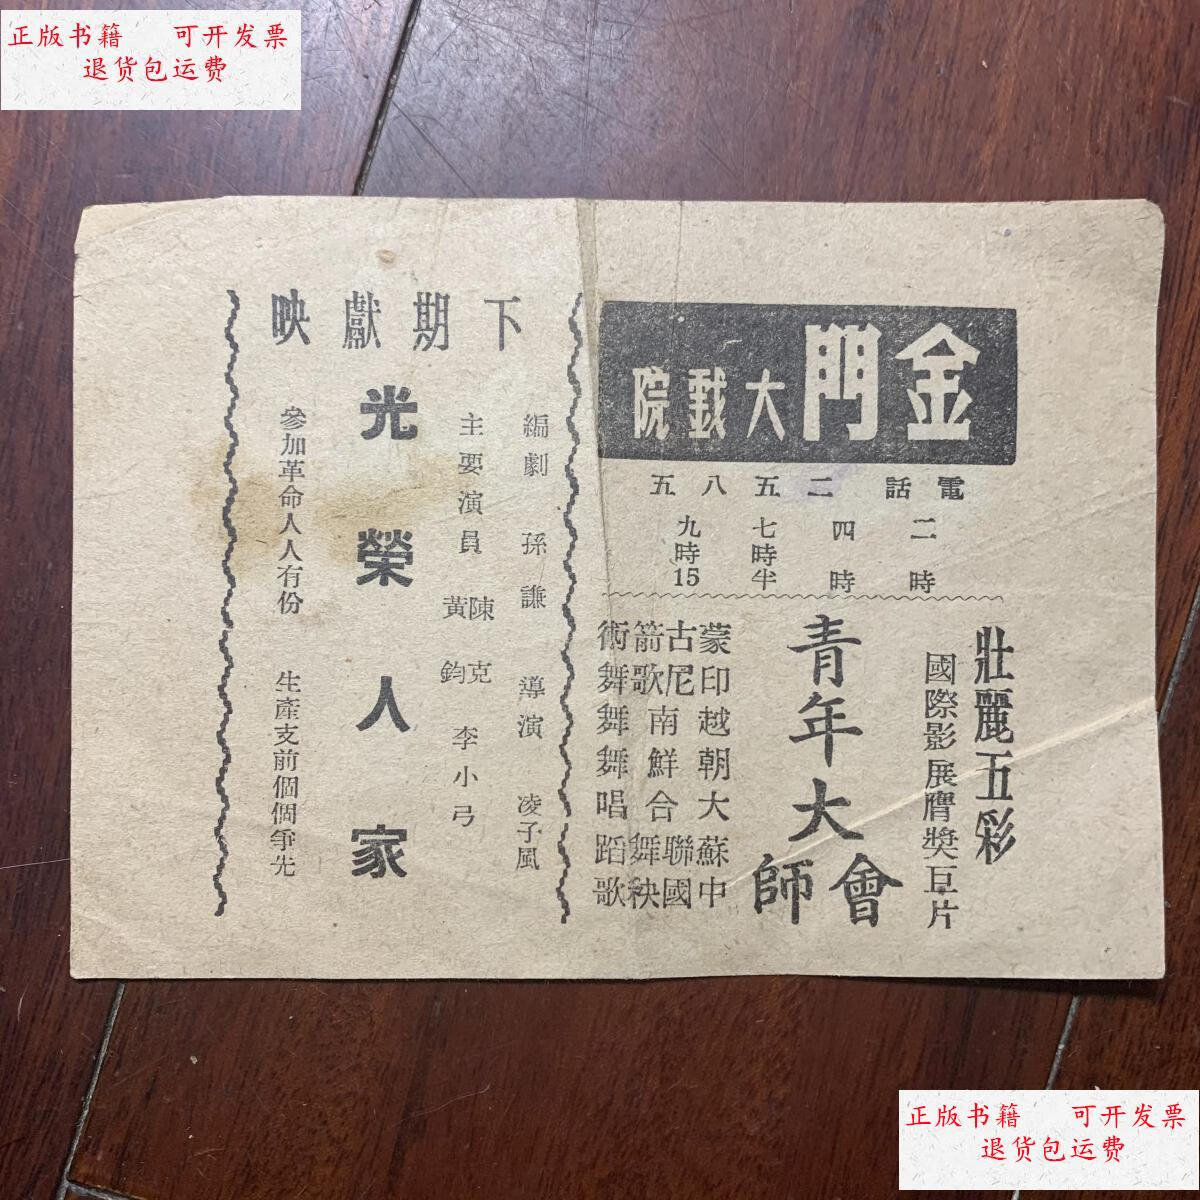 正版书籍 可开发票
退货包运费
金門大戲院
電話 二五八五
二時
四時
七時半
九時15
壯麗五彩
國際影展膺獎巨片
青年大會師
蒙古箭術
印尼歌舞
越南舞
朝鮮舞
大合唱
蘇聯舞蹈
中國秧歌
下期獻映
編劇 孫謙 導演 凌子風
主要演員 陳克 黃鈞 李小弓
光榮人家
參加革命人人有份 生產支前個個爭先
正版书籍 可开发票
退货包运费